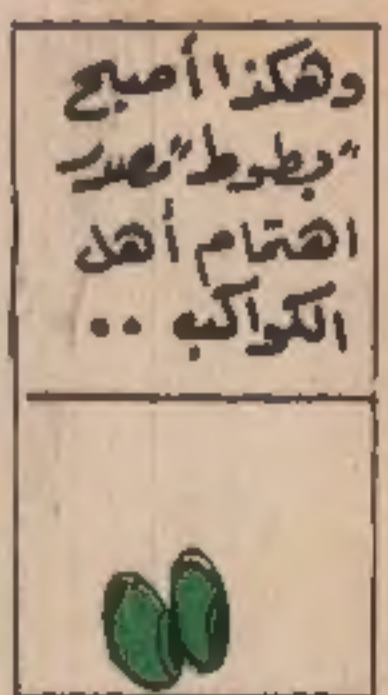 وهكذا أصبح
"بطوط" مصدر
اهتمام أهل
الكواكب ..